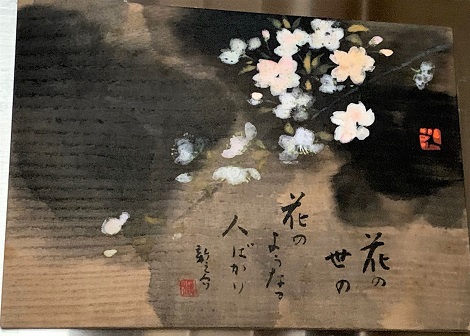 花の
世の
花の
ようなる
人ばかり